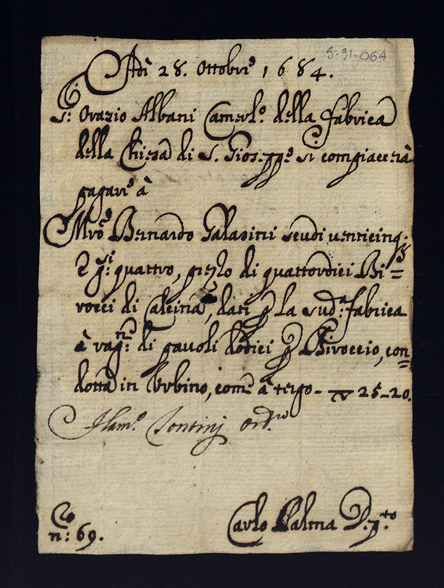 S-91-064
Adì 28. Ottobre 1684.
Sr. Orazio Albani Camerlo. della Fabrica
della Chiesa di S. Gioseppe si compiacerà
pagare à
Mro. Bernardo Galasini scudi venticinq:
e gsi: quattro, prezzo di quattordici Bi=
rocci di Calcina, dati p la sud.a fabrica
à ragne. di pavoli dodici p Biroccio, con
dotta in Urbino, come à tergo - 25-20.
ord.rio
Carlo Palma D.p.to
n: 69.